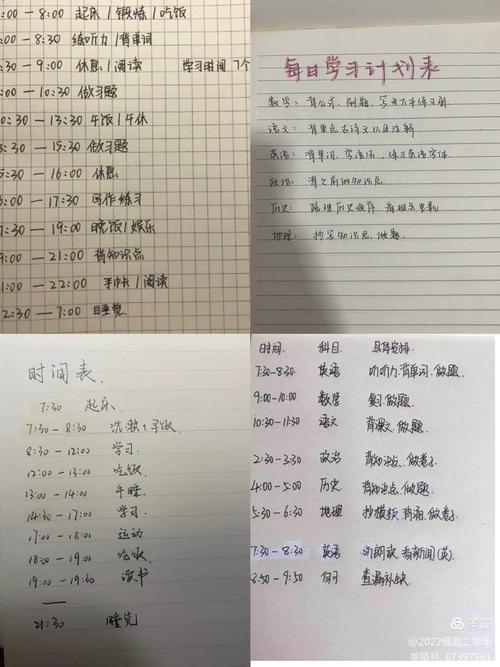 :00 — 8:00 起床 / 锻炼 / 吃饭
:00 — 8:30 练听力 / 背单词
:30 — 9:00 休息 / 阅读 学习时间 7个
:00 — 10:30 做习题
0:30 — 13:30 午饭 / 午休
3:30 — 15:30 做习题
5:30 — 16:00 休息
6:00 — 17:30 写作练习
7:30 — 19:00 晚饭 / 娱乐
9:00 — 21:00 背知识点
1:00 — 22:00 手帐 / 阅读
2:30 — 7:00 睡觉
每日学习计划表
数学: 背公式, 例题, 写
语文: 背重点古诗文以及注解
英语: 背单词, 写语法, 练习英语字体
政治: 背之前的知识点
历史: 梳理历史顺序, 看相关
地理: 抄写知识点, 做题.
时间表.
7:30 起床.
7:30 — 8:30 洗漱+早饭.
8:30 — 12:00 学习.
12:00 — 13:00 吃饭.
13:00 — 14:00 午睡.
14:30 — 17:00 学习.
17:00 — 18:00 运动
18:00 — 19:00 吃饭
19:00 — 19:30 读书
21:30 睡觉
时间. 科目. 具体安排.
7:30-8:30 英语 听听力.背单词.做题.
9:00-10:00 数学 做题.
10:30-11:30 语文 背课文.做题.
2:30-3:30 政治 背知识点.做卷子
4:00-5:00 历史. 背知识点.做题.
5:30-6:30 地理 抄模板.背诵.做卷子.
7:30-8:30 英语 听朗读.看新闻(英).
8:50-9:50 自习 查漏补缺
美篇
@2022级高二学年
美篇号: 67397561